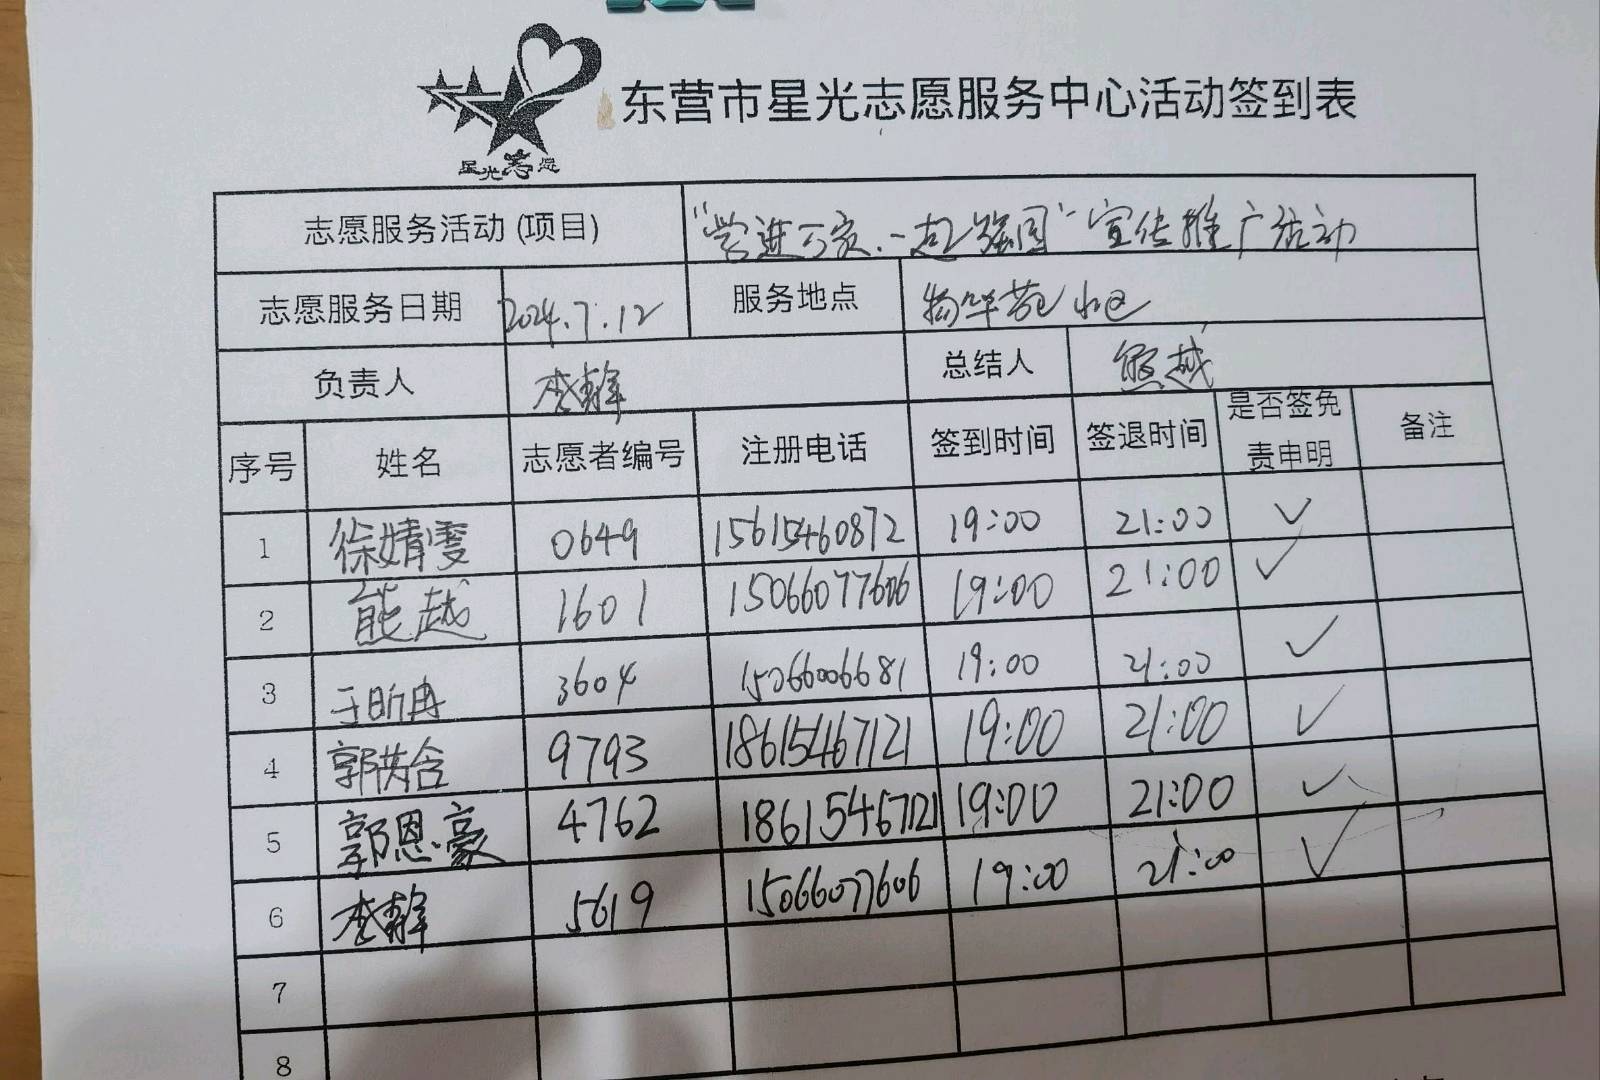 星光志愿
东营市星光志愿服务中心活动签到表
志愿服务活动(项目) “学进万家、一起强国”宣传推广活动
志愿服务日期 2024.7.12 服务地点 物华苑小区
负责人 李静 总结人 熊越
序号 姓名 志愿者编号 注册电话 签到时间 签退时间 是否签免责申明 备注
1 徐婧雯 0649 15615460872 19:00 21:00 ✓
2 熊越 1601 15066077606 19:00 21:00 ✓
3 于昕冉 3604 15066006681 19:00 21:00 ✓
4 郭芮含 9793 18615467121 19:00 21:00 ✓
5 郭恩豪 4762 18615467121 19:00 21:00 ✓
6 5619 15066077606 19:00 21:00 ✓
7
8